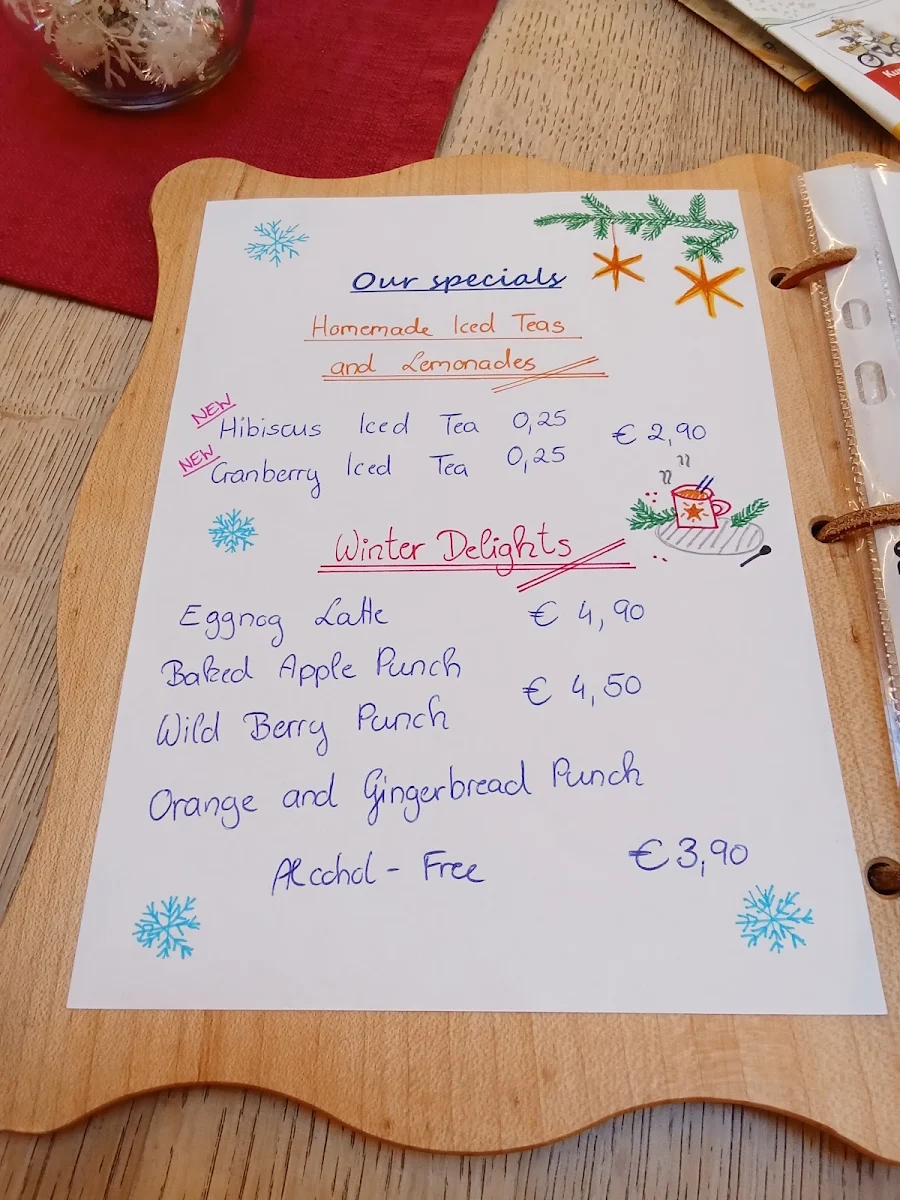 Our specials
Homemade Iced Teas
and Lemonades
NEW
Hibiscus Iced Tea 0,25
€ 2,90
NEW
Cranberry Iced Tea 0,25
Winter Delights
Eggnog Latte € 4,90
Baked Apple Punch
€ 4,50
Wild Berry Punch
Orange and Gingerbread Punch
Alcohol - Free €3,90